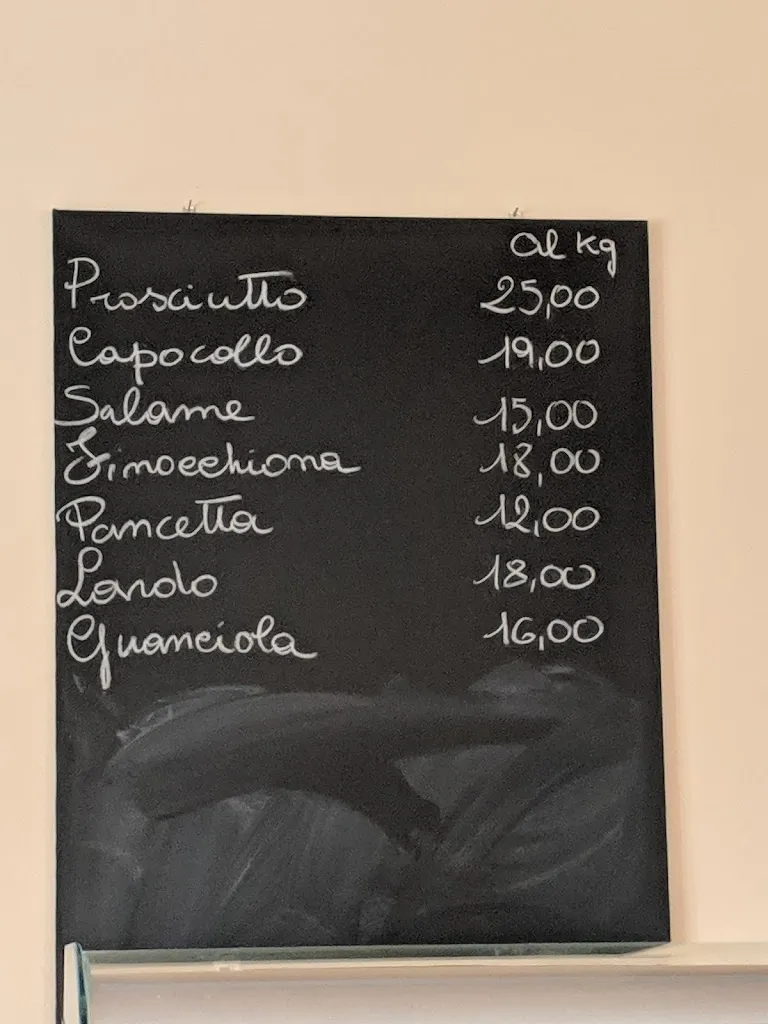 al kg
Prosciutto 25,00
Capocollo 19,00
Salame 15,00
Finocchiona 18,00
Pancetta 12,00
Lardo 18,00
Guanciola 16,00